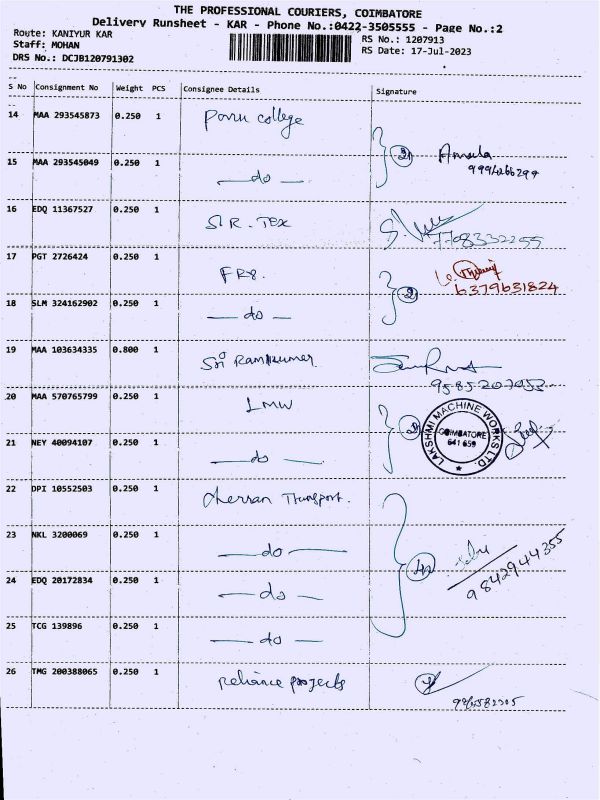 THE PROFESSIONAL COURIERS, COIMBATORE
Delivery Runsheet - KAR - Phone No.:0422-3505555 - Page No.:2
Route: KANIYUR KAR
RS No.: 1207913
Staff: MOHAN
RS Date: 17-Jul-2023
DRS No.: DCJB120791302
S No Consignment No Weight PCS Consignee Details Signature
14 MAA 293545873 0.250 1 Ponu college
15 MAA 293545049 0.250 1 —do—
2 Amula
9994266299
16 EDQ 11367527 0.250 1 SIR. Tex
7708332255
17 PGT 2726424 0.250 1 FR8.
2
6379631824
18 SLM 324162902 0.250 1 —do—
19 MAA 103634335 0.800 1 Sri Ramkumar
9585207053
20 MAA 570765799 0.250 1 LMW
LAKSHMI MACHINE WORKS LTD.
COIMBATORE
641 659
21 NEY 40094107 0.250 1 —do—
22 DPI 10552503 0.250 1 Transport.
23 NKL 3200069 0.250 1 —do—
9842944355
24 EDQ 20172834 0.250 1 —do—
25 TCG 139896 0.250 1 —do—
26 TMG 200388065 0.250 1 Reliance projects